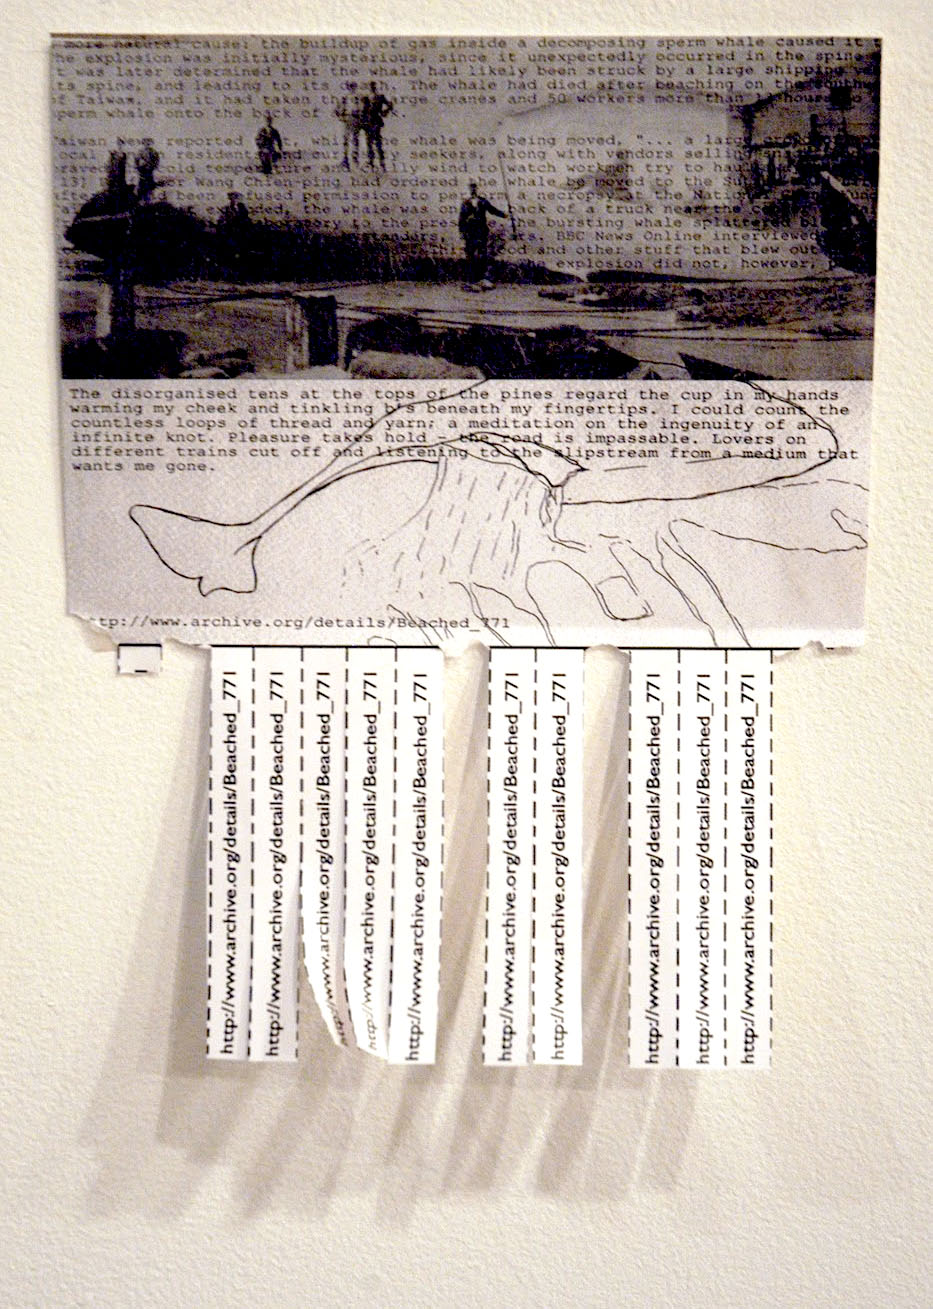 more natural cause: the buildup of gas inside a decomposing sperm whale caused it
he explosion was initially mysterious, since it unexpectedly occurred in the spine
t was later determined that the whale had likely been struck by a large shipping
ts spine, and leading to its death. The whale had died after beaching on the
f Taiwan, and it had taken three large cranes and 50 workers more than hours to
perm whale onto the back of a truck.
aiwan News reported that, while the whale was being moved, "... a large
ocal residents and curiosity seekers, along with vendors selling
braved cold temperature and chilly wind to watch workmen try to
13] Wang Chien-ping had ordered the whale be moved to the
after been refused permission to perform a necropsy at the National
the whale was on back of a truck near the
laboratory to the the bursting whale splattered
bystanders, cars. BBC News Online interviewed
blood and other stuff that blew out
the explosion did not, however,
The disorganised tens at the tops of the pines regard the cup in my hands
warming my cheek and tinkling b's beneath my fingertips. I could count the
countless loops of thread and yarn; a meditation on the ingenuity of an
infinite knot. Pleasure takes hold – the road is impassable. Lovers on
different trains cut off and listening to the slipstream from a medium that
wants me gone.
tp://www.archive.org/details/Beached_771
http://www.archive.org/details/Beached_771
http://www.archive.org/details/Beached_771
http://www.archive.org/details/Beached_771
http://www.archive.org/details/Beached_771
http://www.archive.org/details/Beached_771
http://www.archive.org/details/Beached_771
http://www.archive.org/details/Beached_771
http://www.archive.org/details/Beached_771
http://www.archive.org/details/Beached_771
http://www.archive.org/details/Beached_771